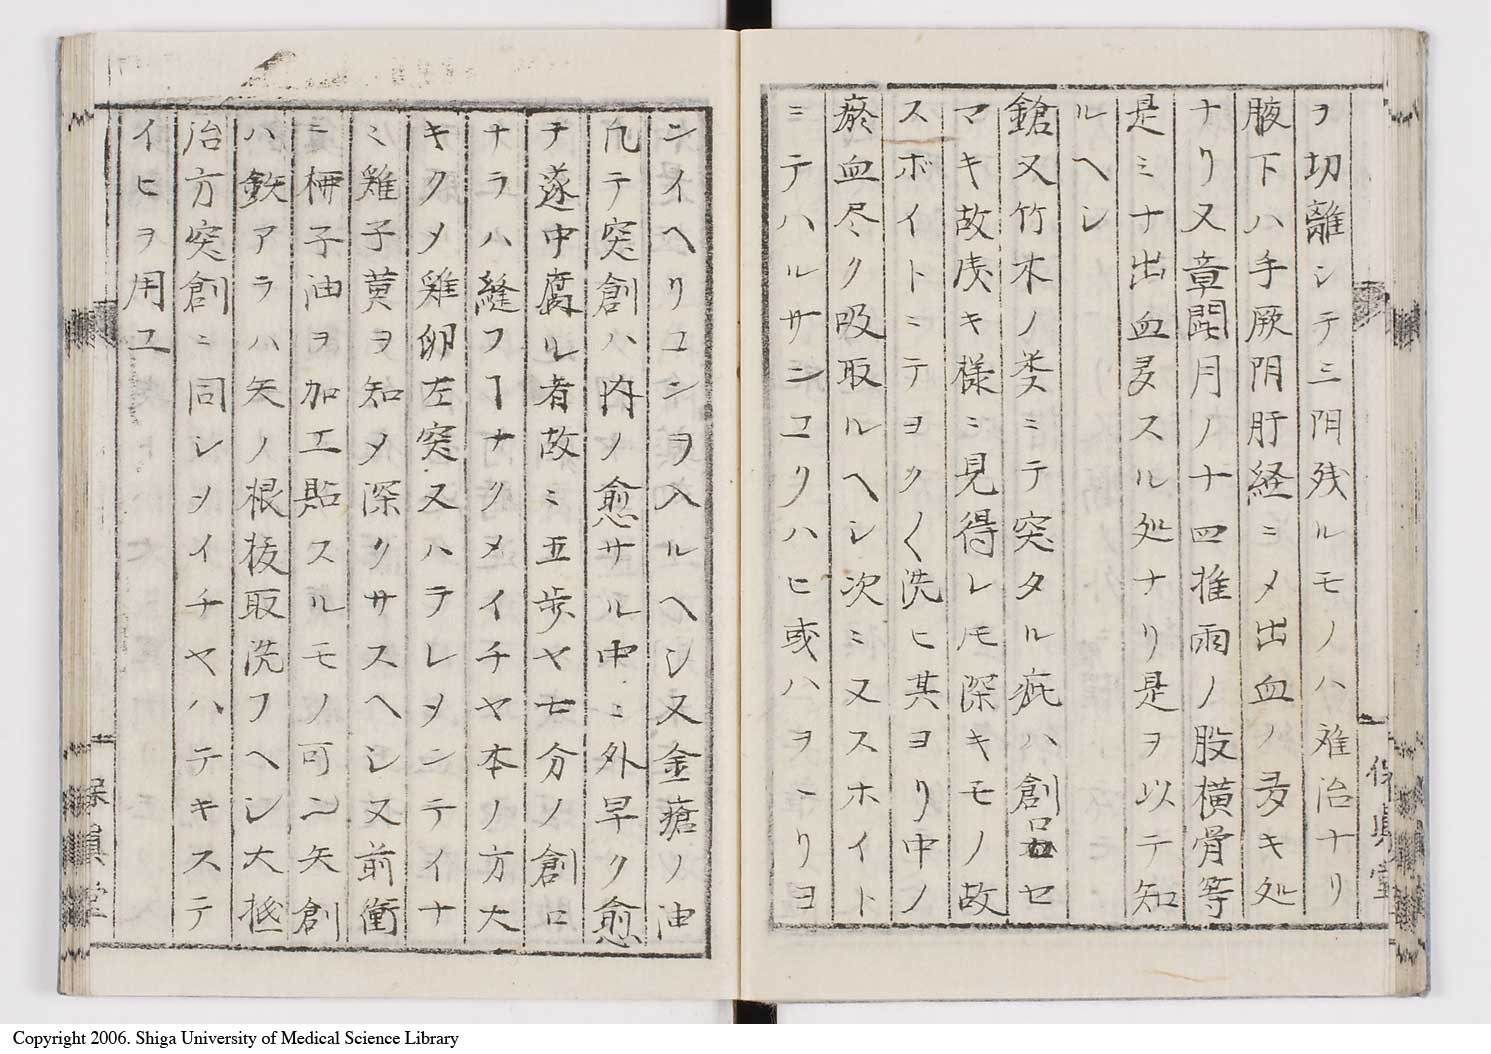 ヲ切離シテ三阴残ルモノハ难治ナリ
腋下ハ手厥阴肝経ニメ出血ノ多キ処
ナリ又章門月ノ十四推雨ノ股横骨等
是ミナ出血多スル処ナリ是ヲ以テ知
ルヘシ
鎗又竹木ノ类ニテ突タル疵ハ創口セ
マキ故浅キ様ニ見得レ𪜈深キモノ故
スボイトニテヨク〱洗ヒ其ヨリ中ノ
瘀血尽ク吸取ルヘシ次ニ又スホイト
ニテハルサンコリハヒ或ハヲヽリヨ
ンイヘリコンヲ入ルヘシ又金瘡ノ油
凢テ突創ハ内ノ愈サル中ニ外早ク愈
テ遂中腐ル者故ニ五歩ヤ七分ノ創口
ナラハ縫フヿナクメイチヤ本ノ方大
キクメ雞卵左突又ハテレメンテイナ
ミ雞子黄ヲ知メ深クサスヘシ又前衝
ニ椰子油ヲ加工貼スルモノ可ン矢創
ハ鉄アラハ矢ノ根抜取洗フヘシ大抵
治方突創ニ同シメイチヤハテキステ
イヒヲ用ユ
保真堂
Copyright 2006. Shiga University of Medical Science Library